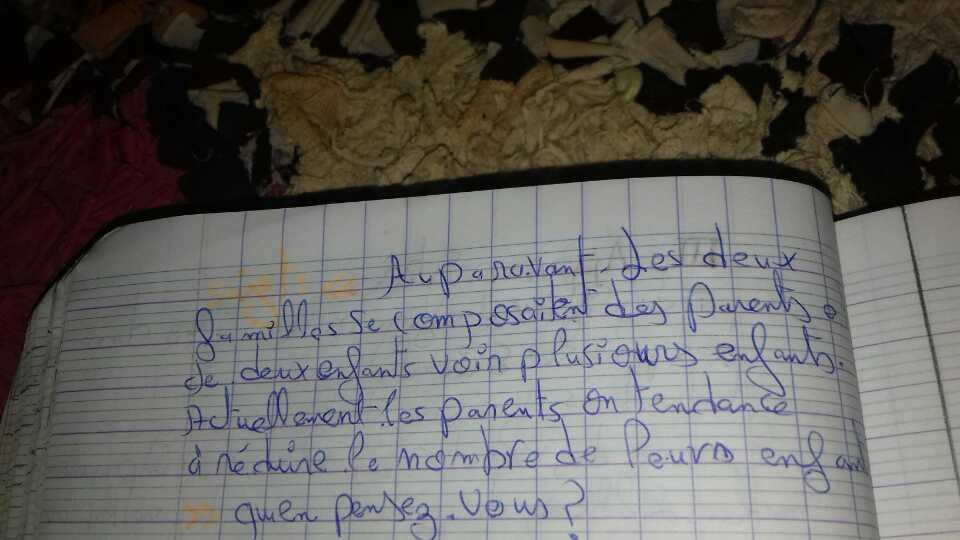 Auparavant. des deux
familles se composaient des parents e
de deux enfants voir plusieurs enfants.
Actuellement les parents on tendance
à réduire le nombre de leurs enfant
quen pensez-vous?